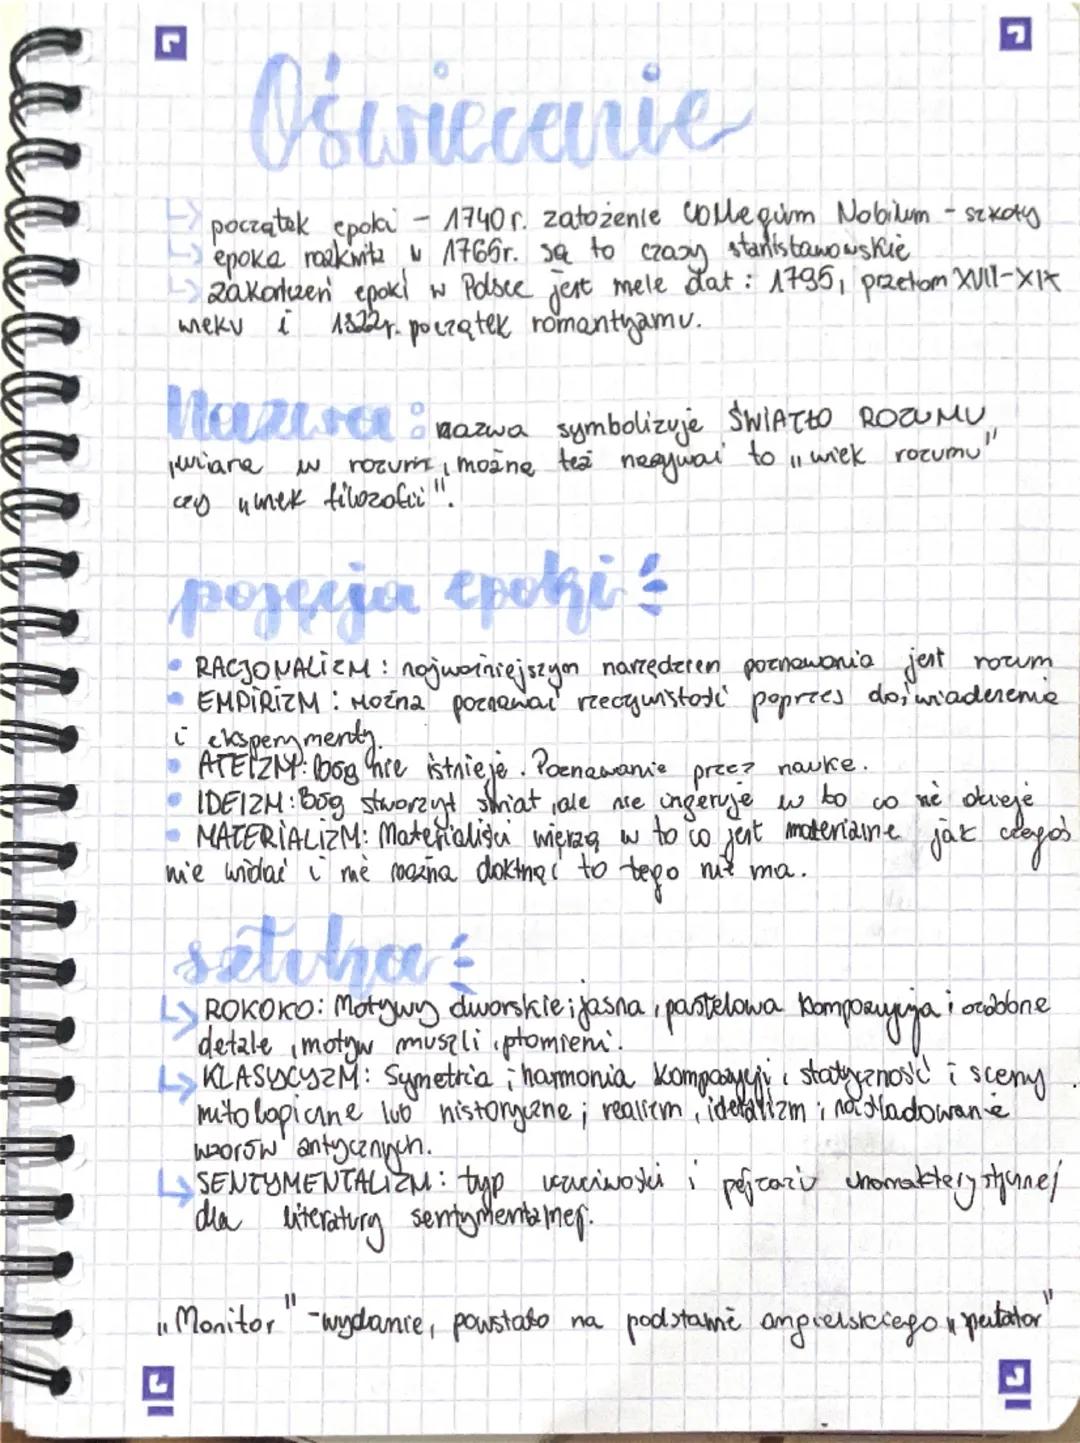 Oświecenie
początek epoki - 1740 r. założenie Collegium Nobilium - szkoły
epoka rozkwita w 1765r. są to czasy stanisławowskie
zakończeń epoki w Polsce jest wiele dat : 1795, przełom XVIII-XIX
wieku i 1822r. początek romantyzmu.
Nazwa: nazwa symbolizuje ŚWIATŁO ROZUMU,
wiara w rozum, można też nazywać to „wiek rozumu”
czy „wiek filozofii”.
pojęcia epoki
• RACJONALIZM : najważniejszym narzędziem poznawania jest rozum
• EMPIRIZM : Można poznawać rzeczywistość poprzez doświadczenie
i eksperymenty.
• ATEIZM: Bóg nie istnieje. Poznawanie przez naukę.
• IDEIZM: Bóg stworzył świat, ale nie ingeruje w to co się dzieje
• MATERIALIZM: Materialiści wierzą w to co jest materialne jak czegoś
nie widać i nie można dotknąć to tego nie ma.
sztuka
ROKOKO: Motywy dworskie; jasna, pastelowa kompozycja i ozdobne
detale, motyw muszli, płomieni.
KLASYCYZM: Symetria; harmonia kompozycji; statyczność; sceny
mitologiczne lub historyczne; realizm, idealizm; naśladowanie
wzorów antycznych.
SENTYMENTALIZM: typ uczuciwości i pejzażu charakterystycznej
dla literatury sentymentalnej.
„Monitor” - wydanie, powstało na podstawie angielskiego